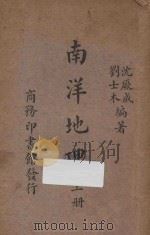 沈厥成
劉士木
編著
南洋地理上册
商務印書館發行